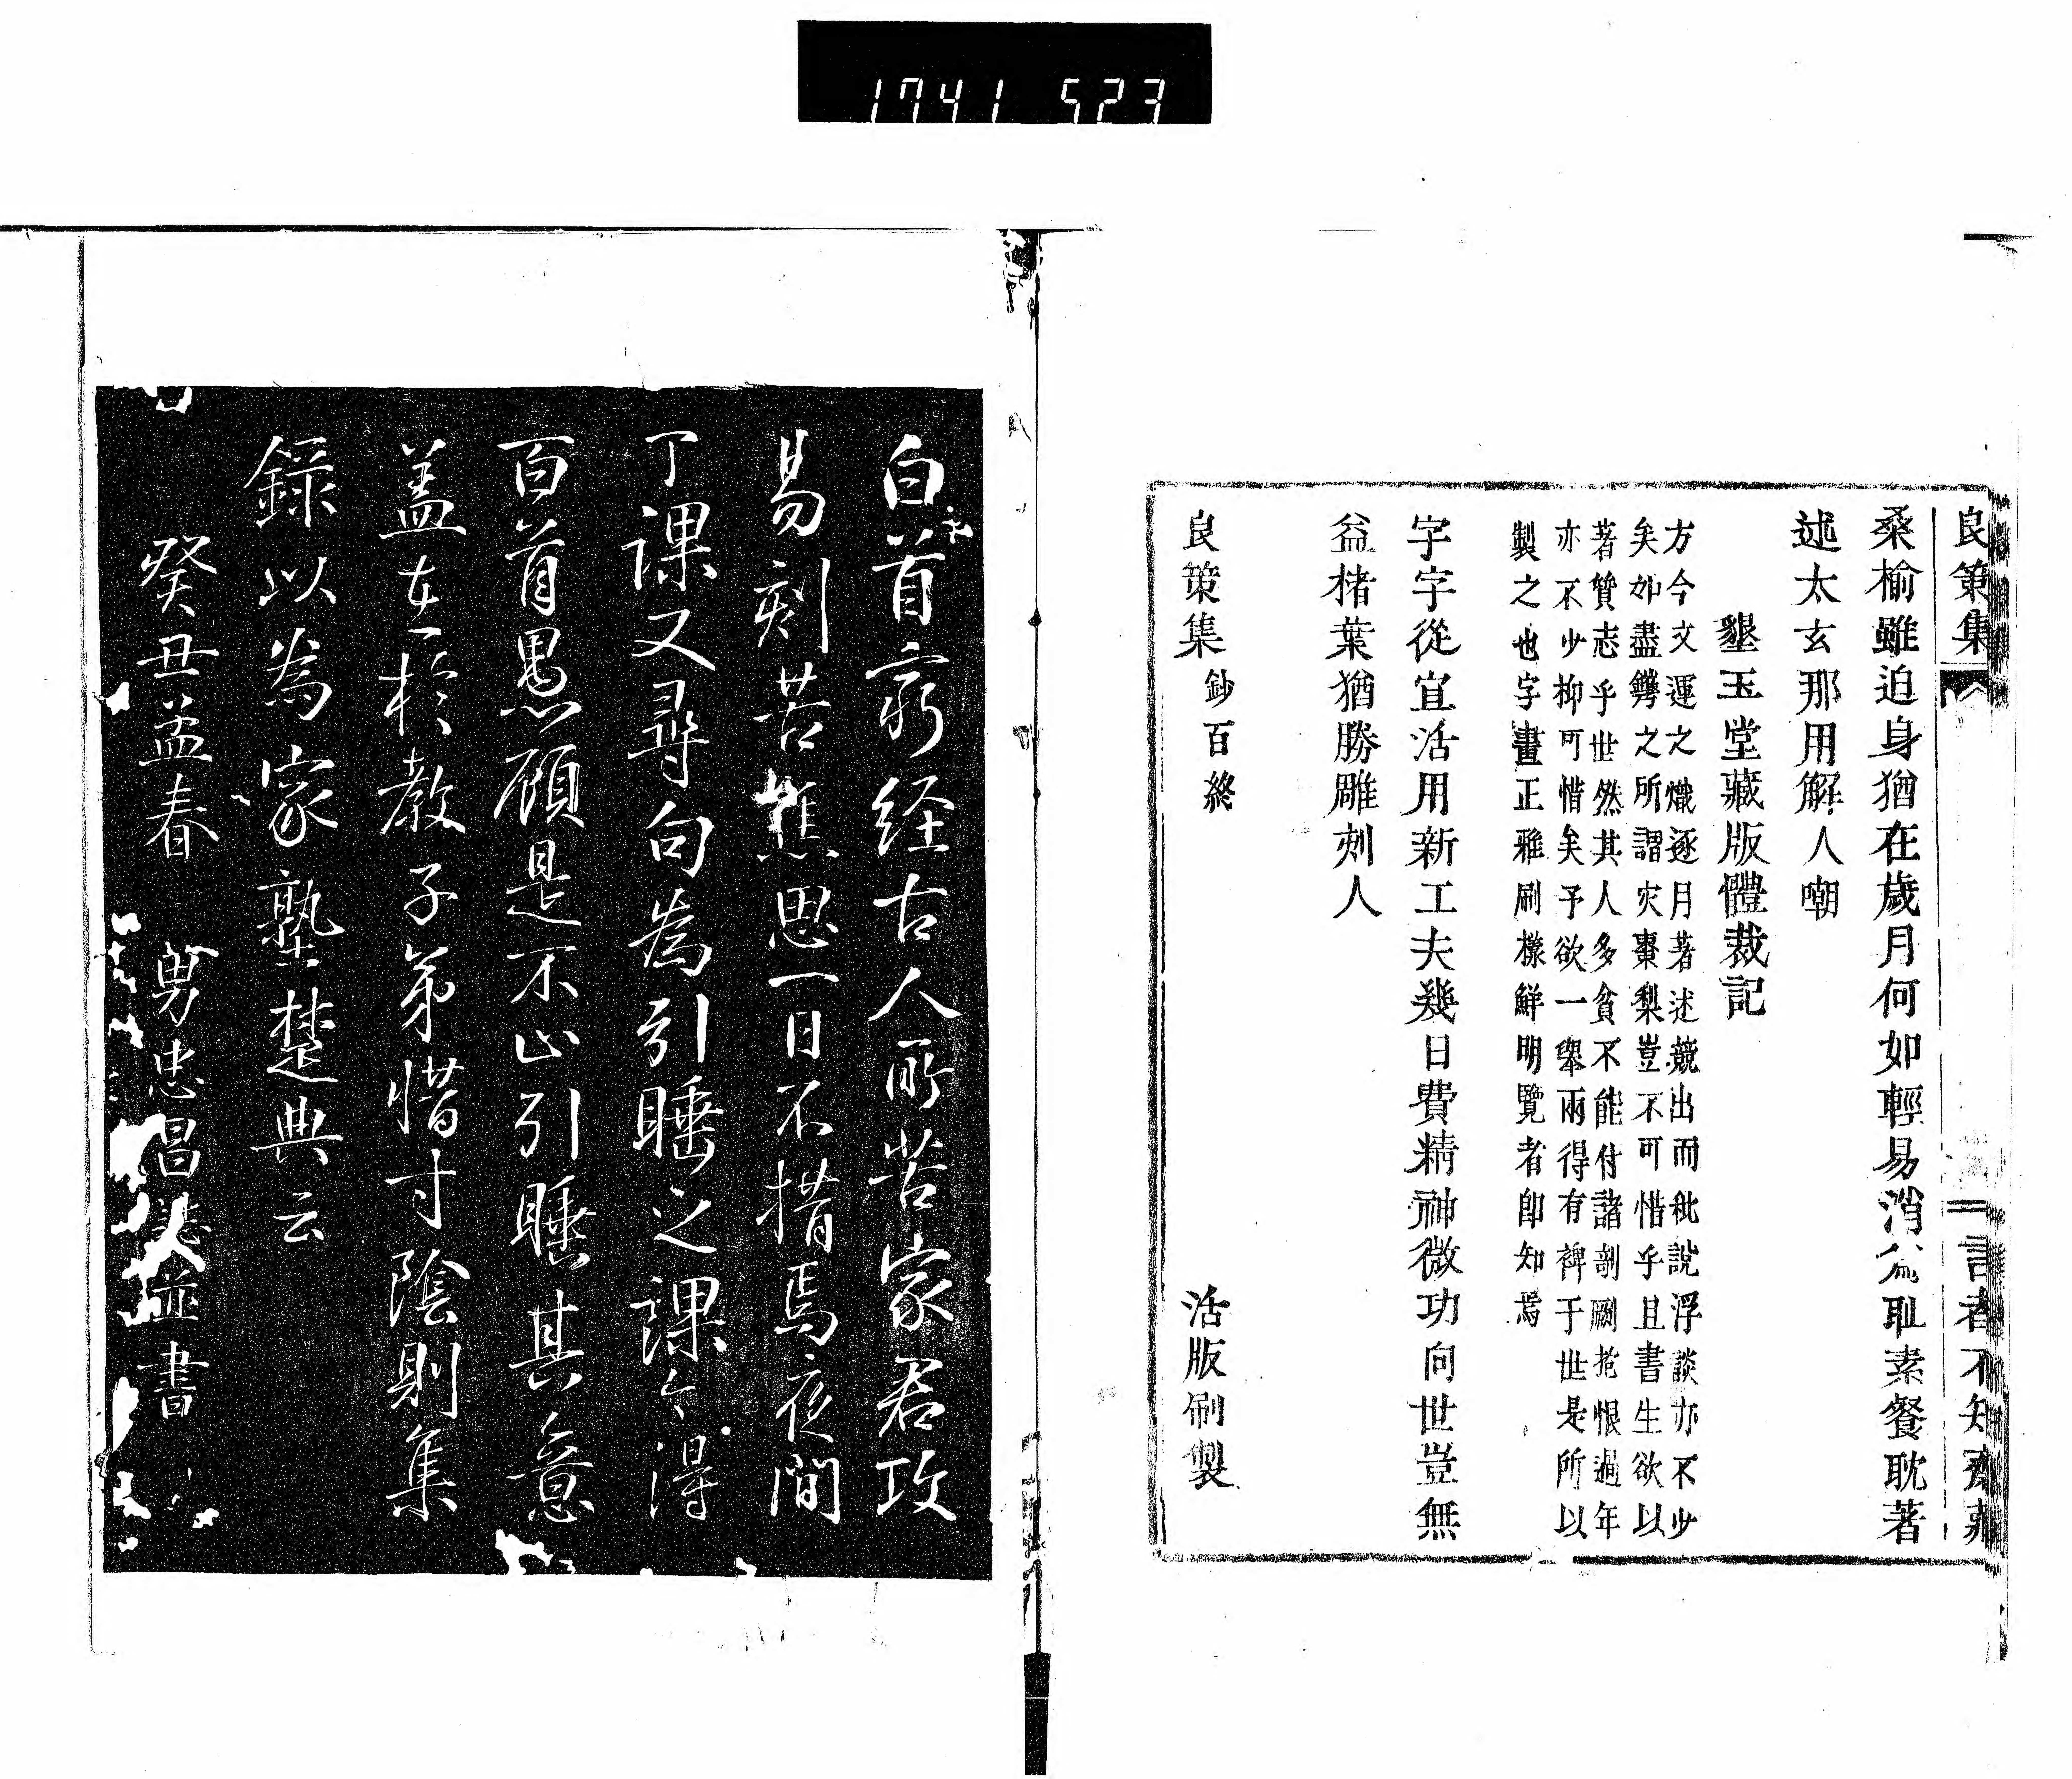 1741 523
良策集
言者不知齋藏
桑榆雖迫身猶在歲月何如輕易消公爲耻素餐耽著
述太玄那用解人嘲
墾玉堂藏版體裁記
方今文運之熾逐月著述競出而秕說浮談亦不少
矣如盡鐫之所謂灾棗梨豈不可惜乎且書生欲以
著贊志乎世然其人多貧不能付諸剞劂抱恨過年
亦不少抑可惜矣予欲一舉兩得有裨于世是所以
製之也字畫正雅刷樣鮮明覽者卽知焉
字字從宜活用新工夫幾日費精神微功向世豈無
益楮葉猶勝雕刻人
良策集鈔百終
活版刷製
白首窮経古人所苦家君攻
易刻苦焦思一日不措焉夜間
丁課又尋句為引睡之課今得
百首愚顧是不止引睡其意
盖在於教子弟惜寸陰則集
錄以為家塾楚典云
癸丑孟春 男忠昌 並書